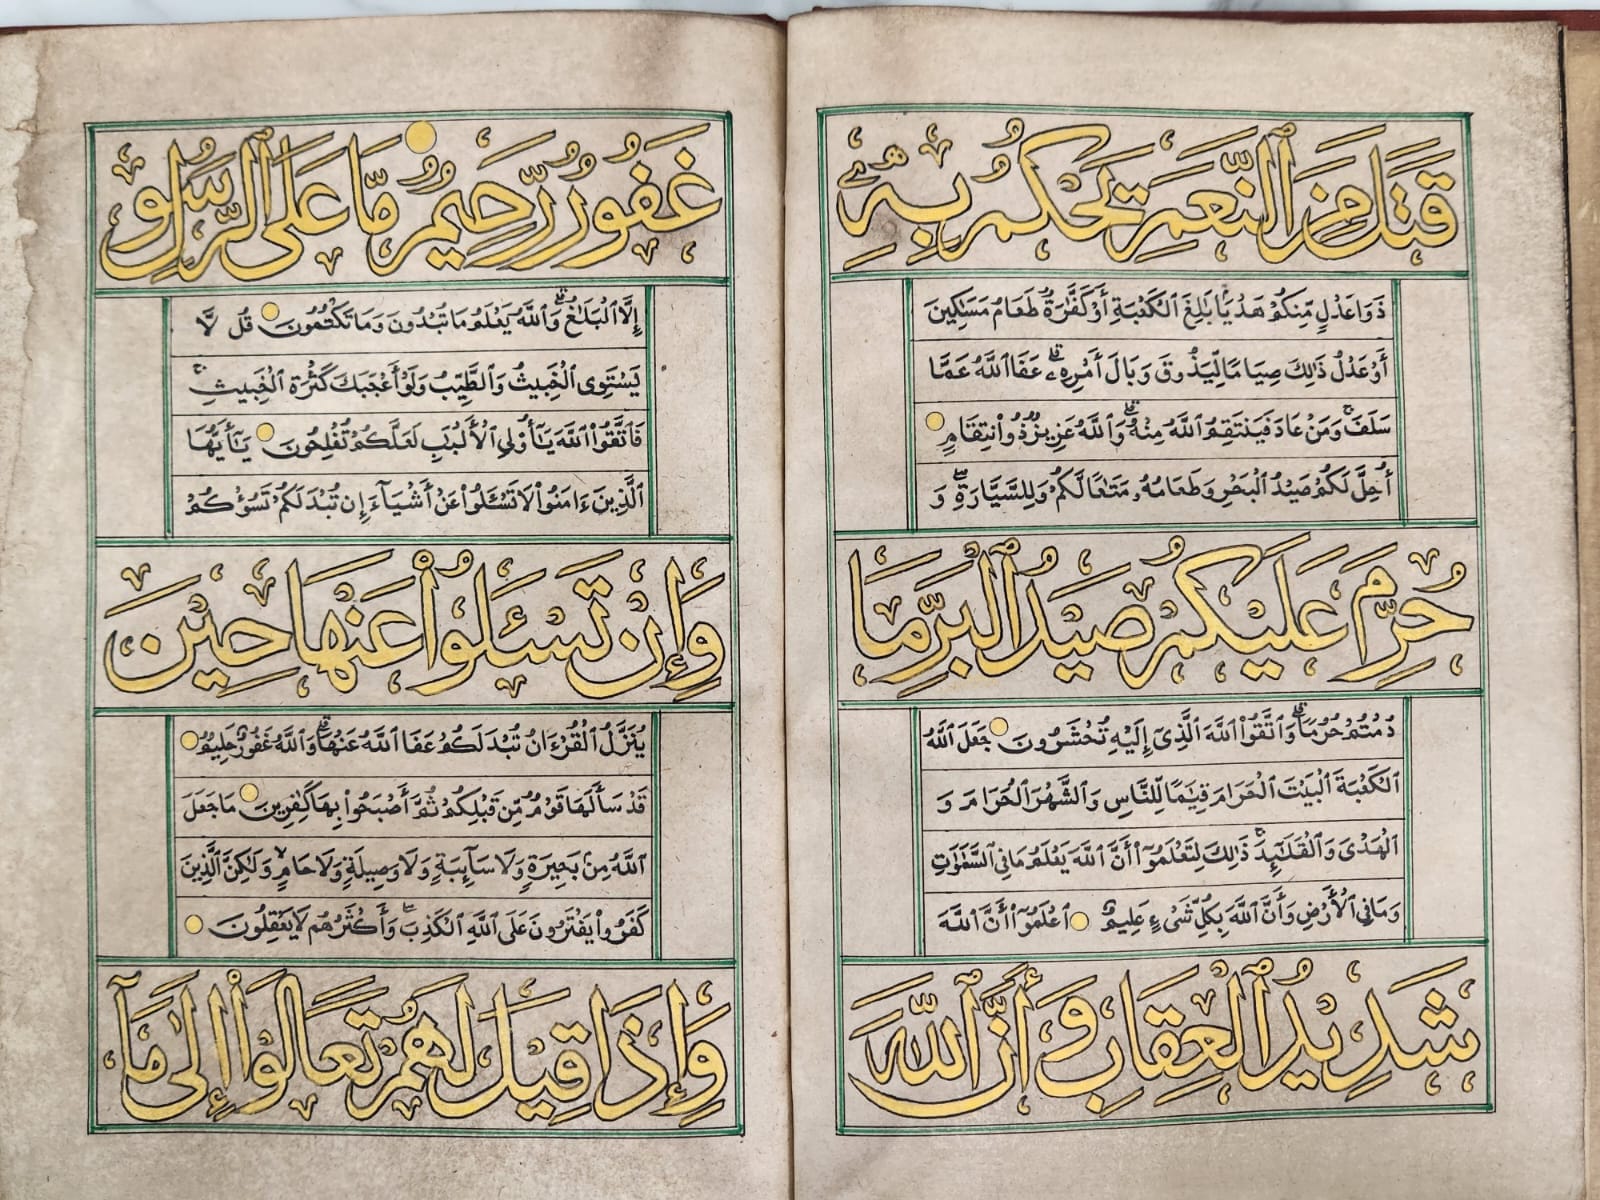 قَتَلَ مِنَ ٱلنَّعَمِ يَحْكُمُ بِهِۦ
ذَوَا عَدْلٍ مِّنكُمْ هَدْيًۢا بَـٰلِغَ ٱلْكَعْبَةِ أَوْ كَفَّـٰرَةٌ طَعَامُ مَسَـٰكِينَ
أَوْ عَدْلُ ذَٰلِكَ صِيَامًا لِّيَذُوقَ وَبَالَ أَمْرِهِۦ ۗ عَفَا ٱللَّهُ عَمَّا
سَلَفَ ۚ وَمَنْ عَادَ فَيَنتَقِمُ ٱللَّهُ مِنْهُ ۗ وَٱللَّهُ عَزِيزٌ ذُو ٱنتِقَامٍ
أُحِلَّ لَكُمْ صَيْدُ ٱلْبَحْرِ وَطَعَامُهُۥ مَتَـٰعًا لَّكُمْ وَلِلسَّيَّارَةِ ۖ وَ
حُرِّمَ عَلَيْكُمْ صَيْدُ ٱلْبَرِّ مَا
دُمْتُمْ حُرُمًا ۗ وَٱتَّقُوا۟ ٱللَّهَ ٱلَّذِىٓ إِلَيْهِ تُحْشَرُونَ جَعَلَ ٱللَّهُ
ٱلْكَعْبَةَ ٱلْبَيْتَ ٱلْحَرَامَ قِيَـٰمًا لِّلنَّاسِ وَٱلشَّهْرَ ٱلْحَرَامَ وَ
ٱلْهَدْىَ وَٱلْقَلَـٰٓئِدَ ۚ ذَٰلِكَ لِتَعْلَمُوٓا۟ أَنَّ ٱللَّهَ يَعْلَمُ مَا فِى ٱلسَّمَـٰوَٰتِ
وَمَا فِى ٱلْأَرْضِ وَأَنَّ ٱللَّهَ بِكُلِّ شَىْءٍ عَلِيمٌ ٱعْلَمُوٓا۟ أَنَّ ٱللَّهَ
شَدِيدُ ٱلْعِقَابِ وَأَنَّ ٱللَّهَ
غَفُورٌ رَّحِيمٌ مَّا عَلَى ٱلرَّسُولِ
إِلَّا ٱلْبَلَـٰغُ ۗ وَٱللَّهُ يَعْلَمُ مَا تُبْدُونَ وَمَا تَكْتُمُونَ قُل لَّا
يَسْتَوِى ٱلْخَبِيثُ وَٱلطَّيِّبُ وَلَوْ أَعْجَبَكَ كَثْرَةُ ٱلْخَبِيثِ ۚ
فَٱتَّقُوا۟ ٱللَّهَ يَـٰٓأُو۟لِى ٱلْأَلْبَـٰبِ لَعَلَّكُمْ تُفْلِحُونَ يَـٰٓأَيُّهَا
ٱلَّذِينَ ءَامَنُوا۟ لَا تَسْـَٔلُوا۟ عَنْ أَشْيَآءَ إِن تُبْدَ لَكُمْ تَسُؤْكُمْ
وَإِن تَسْـَٔلُوا۟ عَنْهَا حِينَ
يُنَزَّلُ ٱلْقُرْءَانُ تُبْدَ لَكُمْ عَفَا ٱللَّهُ عَنْهَا ۗ وَٱللَّهُ غَفُورٌ حَلِيمٌ
قَدْ سَأَلَهَا قَوْمٌ مِّن قَبْلِكُمْ ثُمَّ أَصْبَحُوا۟ بِهَا كَـٰفِرِينَ مَا جَعَلَ
ٱللَّهُ مِنۢ بَحِيرَةٍ وَلَا سَآئِبَةٍ وَلَا وَصِيلَةٍ وَلَا حَامٍ ۙ وَلَـٰكِنَّ ٱلَّذِينَ
كَفَرُوا۟ يَفْتَرُونَ عَلَى ٱللَّهِ ٱلْكَذِبَ ۖ وَأَكْثَرُهُمْ لَا يَعْقِلُونَ
وَإِذَا قِيلَ لَهُمْ تَعَالَوْا۟ إِلَىٰ مَآ